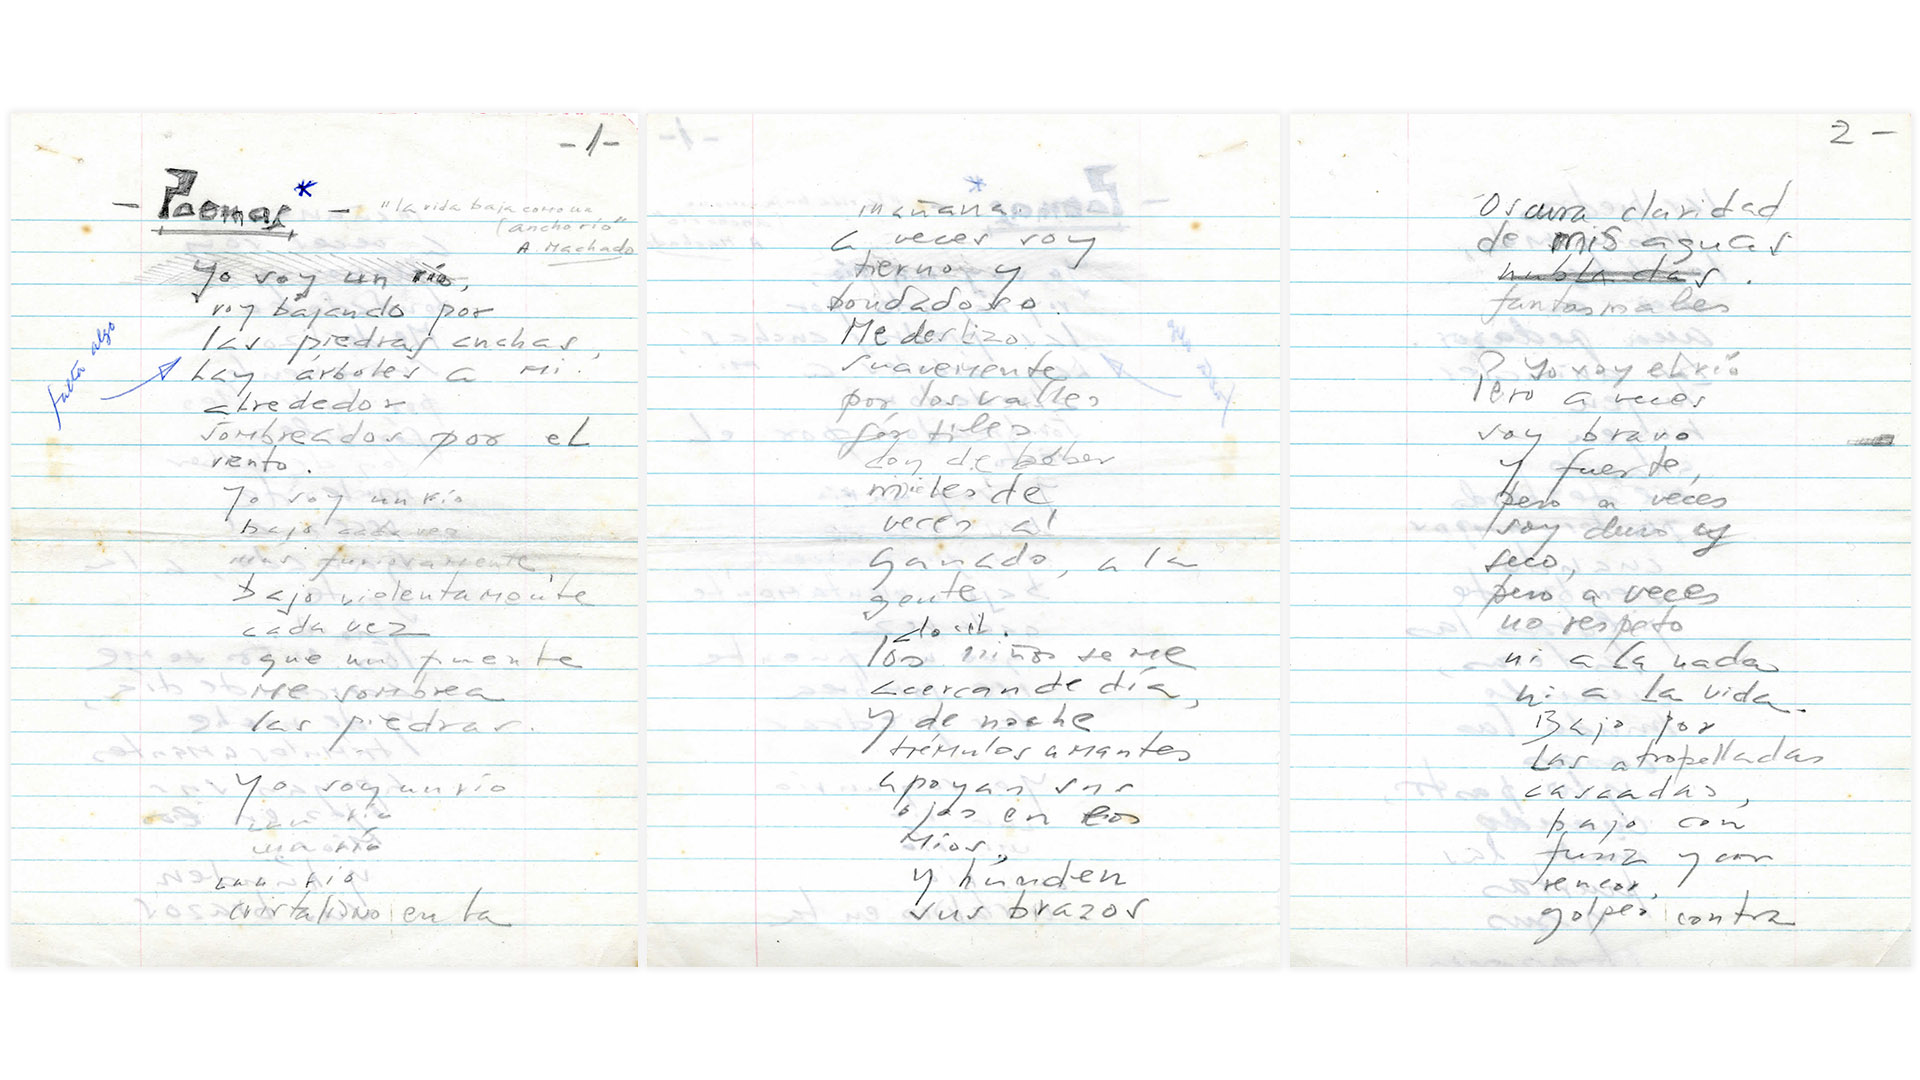 -1-
- Poemas * -
"la vida baja como un
ancho río"
A. Machado
Yo soy un río,
voy bajando por
las piedras anchas,
falta algo
hay árboles a mi
alrededor
sombreados por el
viento.
Yo soy un río
bajo cada vez
mas furiosamente,
bajo violentamente
cada vez
que un puente
me sombrea
las piedras.
Yo soy un río
un río
un río
un río
cristalino en la
mañana.
a veces soy
tierno y
bondadoso.
Me deslizo
suavemente
por los valles
fértiles
doy de beber
miles de
veces al
ganado, a la
gente
dócil.
los niños se me
acercan de día,
y de noche
trémulos amantes
apoyan sus
ojos en los
míos,
y hunden
sus brazos
2 -
Oscura claridad
de mis aguas
nubladas.
fantasmales
Yo soy el río
Pero a veces
soy bravo
y fuerte,
pero a veces
soy duro y
seco,
pero a veces
no respeto
ni a la nada
ni a la vida.
Bajo por
las atropelladas
cascadas,
bajo con
furia y con
rencor,
golpeo contra